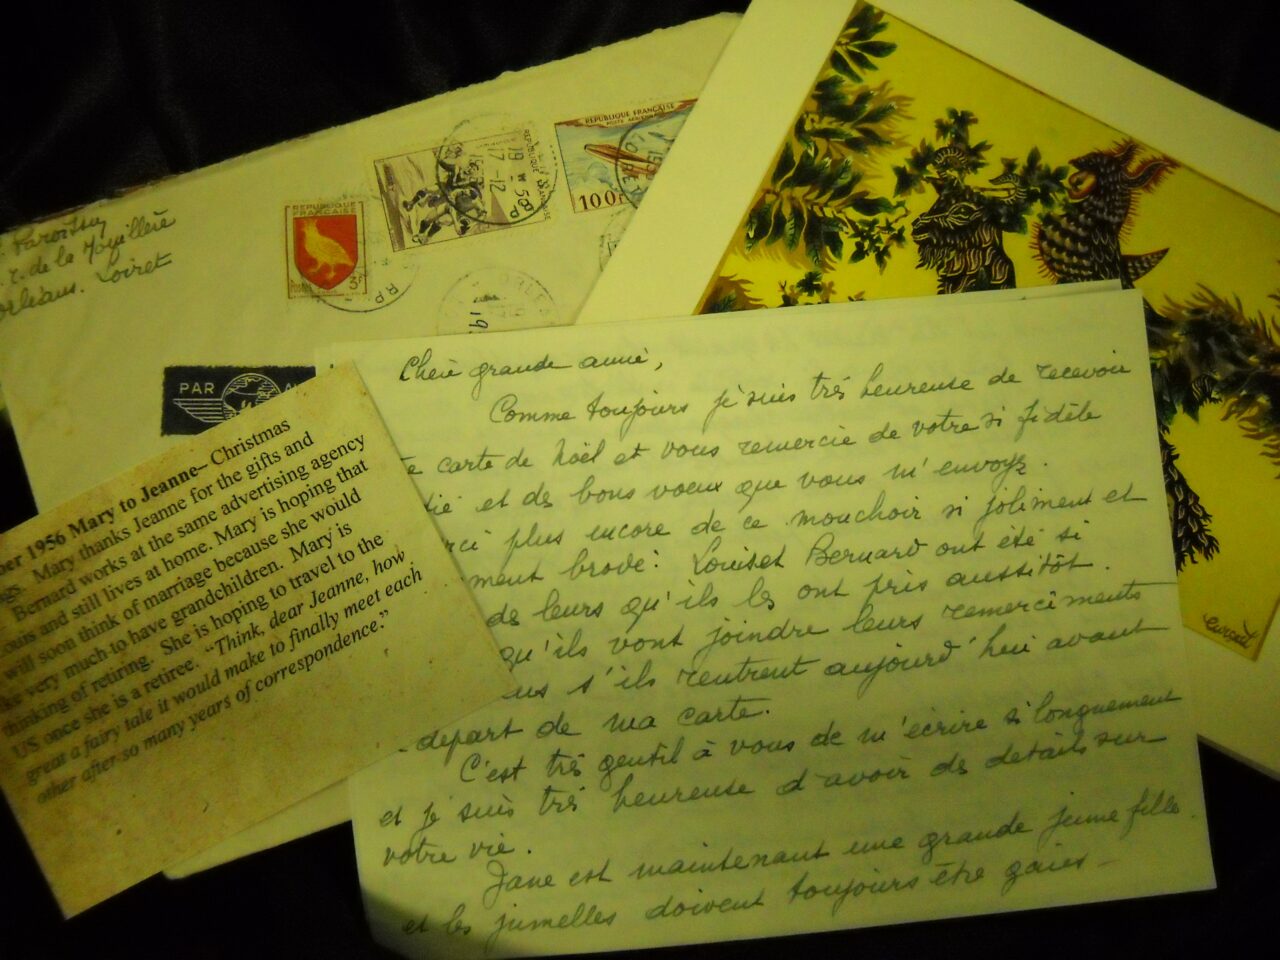 r. de la
Orléans. Loiret
REPUBLIQUE
FRANÇAISE
3F
19
17-12
REPUBLIQUE FRANÇAISE
POSTE AERIENNE
100F
RP
PAR
ber 1956 Mary to Jeanne– Christmas
gs. Mary thanks Jeanne for the gifts and
Bernard works at the same advertising agency
ouis and still lives at home. Mary is hoping that
will soon think of marriage because she would
ke very much to have grandchildren. Mary is
thinking of retiring. She is hoping to travel to the
US once she is a retiree. “Think, dear Jeanne, how
great a fairy tale it would make to finally meet each
other after so many years of correspondence.”
Chère grande amie,
Comme toujours je suis très heureuse de recevoir
e carte de Noël et vous remercie de votre si fidèle
tié et des bons voeux que vous m'envoyez.
rci plus encore de ce mouchoir si joliment et
ment brodé. Louis et Bernard ont été si
des leurs qu'ils les ont pris aussitôt.
qu'ils vont joindre leurs remerciments
us s'ils rentrent aujourd'hui avant
départ de ma carte.
C'est très gentil à vous de m'écrire si longuement
et je suis très heureuse d'avoir des détails sur
votre vie.
Jane est maintenant une grande jeune fille
et les jumelles doivent toujours être gaies –